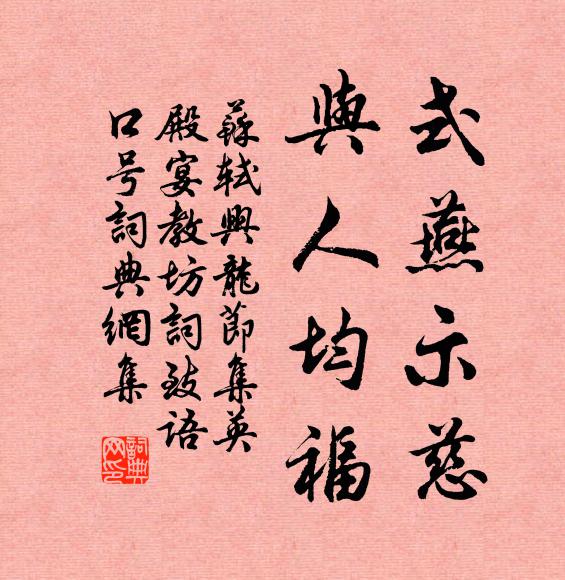 式燕示慈
與人均福
蘇軾興龍節集英
殿宴教坊詞致語
口号詞典網集
詞典
网印